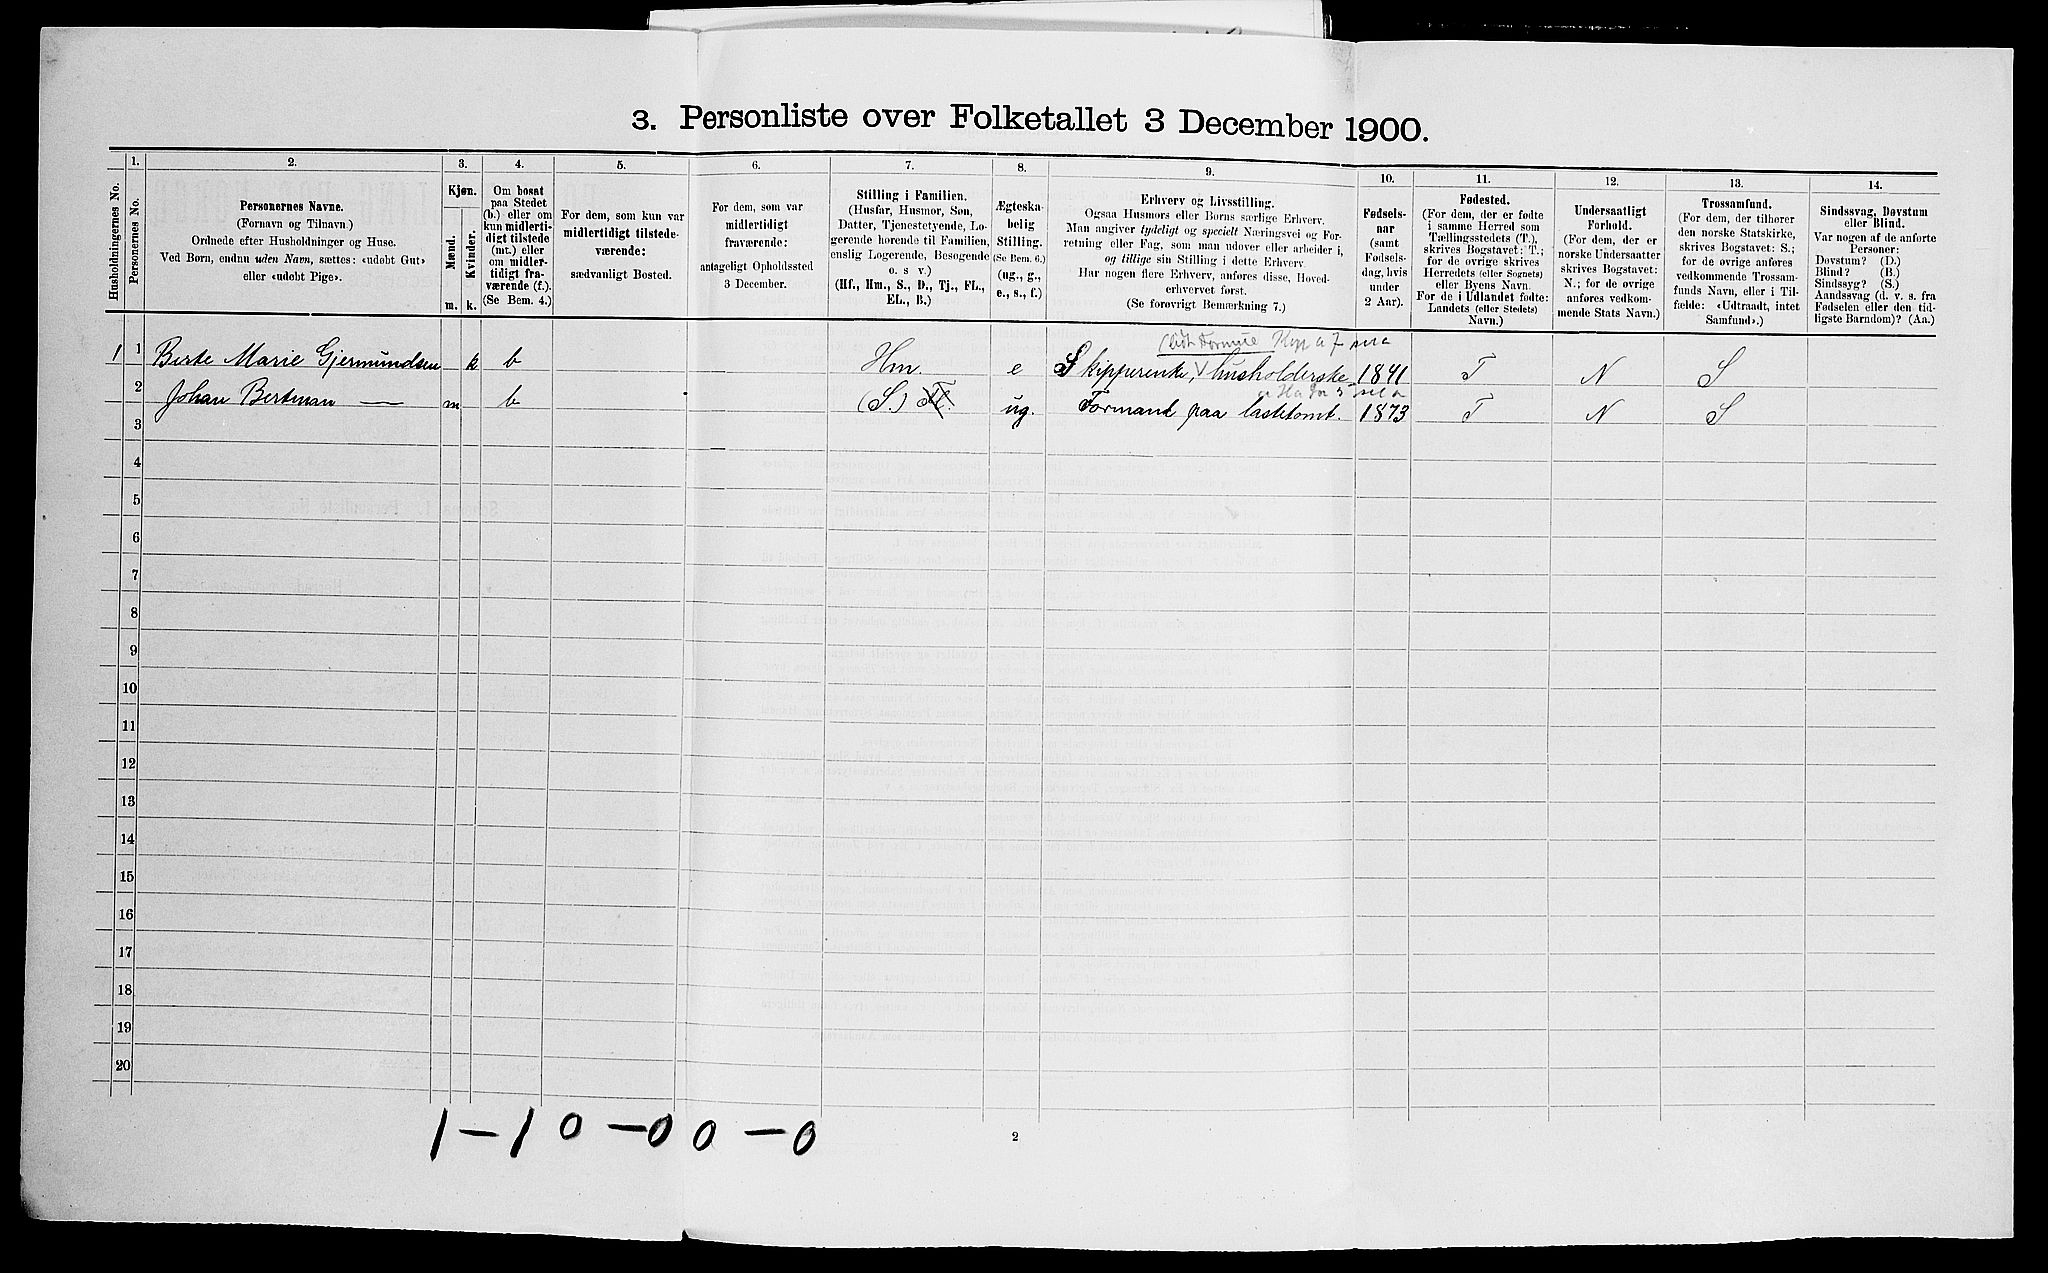 3. Personliste over Folketallet 3 December 1900.
Husholdningernes No.
1.
Personernes No.
2.
Personernes Navne.
(Fornavn og Tilnavn.)
Ordnede efter Husholdninger og Huse.
Ved Børn, endnu uden Navn, sættes: «udøbt Gut»
eller «udøbt Pige».
3.
Kjøn.
Mænd.
Kvinder.
m.
k.
4.
Om bosat
paa Stedet
(b.) eller om
kun midlerti-
digt tilstede
(mt.) eller
om midler-
tidigt fra-
værende (f.).
(Se Bem. 4.)
5.
For dem, som kun var
midlertidigt tilstede-
værende:
sædvanligt Bosted.
6.
For dem, som var
midlertidigt
fraværende:
antageligt Opholdssted
3 December.
7.
Stilling i Familien.
(Husfar, Husmor, Søn,
Datter, Tjenestetyende, Lo-
gerende hørende til Familien,
enslig Logerende, Besøgende
o. s v.)
(Hf., Hm., S., D., Tj., FL.,
EL., B.)
8.
Ægteska-
belig
Stilling.
(Se Bem. 6.)
(ug., g.,
e., s., f.)
9.
Erhverv og Livsstilling.
Ogsaa Husmors eller Børns særlige Erhverv.
Man angiver tydeligt og specielt Næringsvei og For-
retning eller Fag, som man udøver eller arbeider i,
og tillige sin Stilling i dette Erhverv.
Har nogen flere Erhverv, anføres disse, Hoved-
erhvervet først.
(Se forøvrigt Bemærkning 7.)
10.
Fødsels-
aar
(samt
Fødsels-
dag, hvis
under
2 Aar).
11.
Fødested.
(For dem, der er fødte
i samme Herred som
Tællingsstedets (T.),
skrives Bogstavet: T.;
for de øvrige skrives
Herredets (eller Sognets)
eller Byens Navn.
For de i Udlandet fødte:
Landets (eller Stedets)
Navn.)
12.
Undersaatligt
Forhold.
(For dem, der er
norske Undersaatter
skrives Bogstavet:
N.; for de øvrige
anføres vedkom-
mende Stats Navn.)
13.
Trossamfund.
(For dem, der tilhører
den norske Statskirke,
skrives Bogstavet: S.;
for de øvrige anføres
vedkommende Trossam-
funds Navn, eller i Til-
fælde: «Udtraadt, intet
Samfund».)
14.
Sindssvag, Døvstum
eller Blind.
Var nogen af de anførte
Personer:
Døvstum? (D.)
Blind? (B.)
Sindssyg? (S.)
Aandssvag (d. v. s. fra
Fødselen eller den tid-
ligste Barndom)? (Aa.)
1 1 Berte Marie Gjermundsen k b Hm. e Skipperenke, husholderske 1841 T N S
2 Johan Bertman — m b (S.) FL. ug. Formand paa lastetomt. 1873 T N S
3
4
5
6
7
8
9
10
11
12
13
14
15
16
17
18
19
20
1 – 1 0 – 0 0 – 0
2